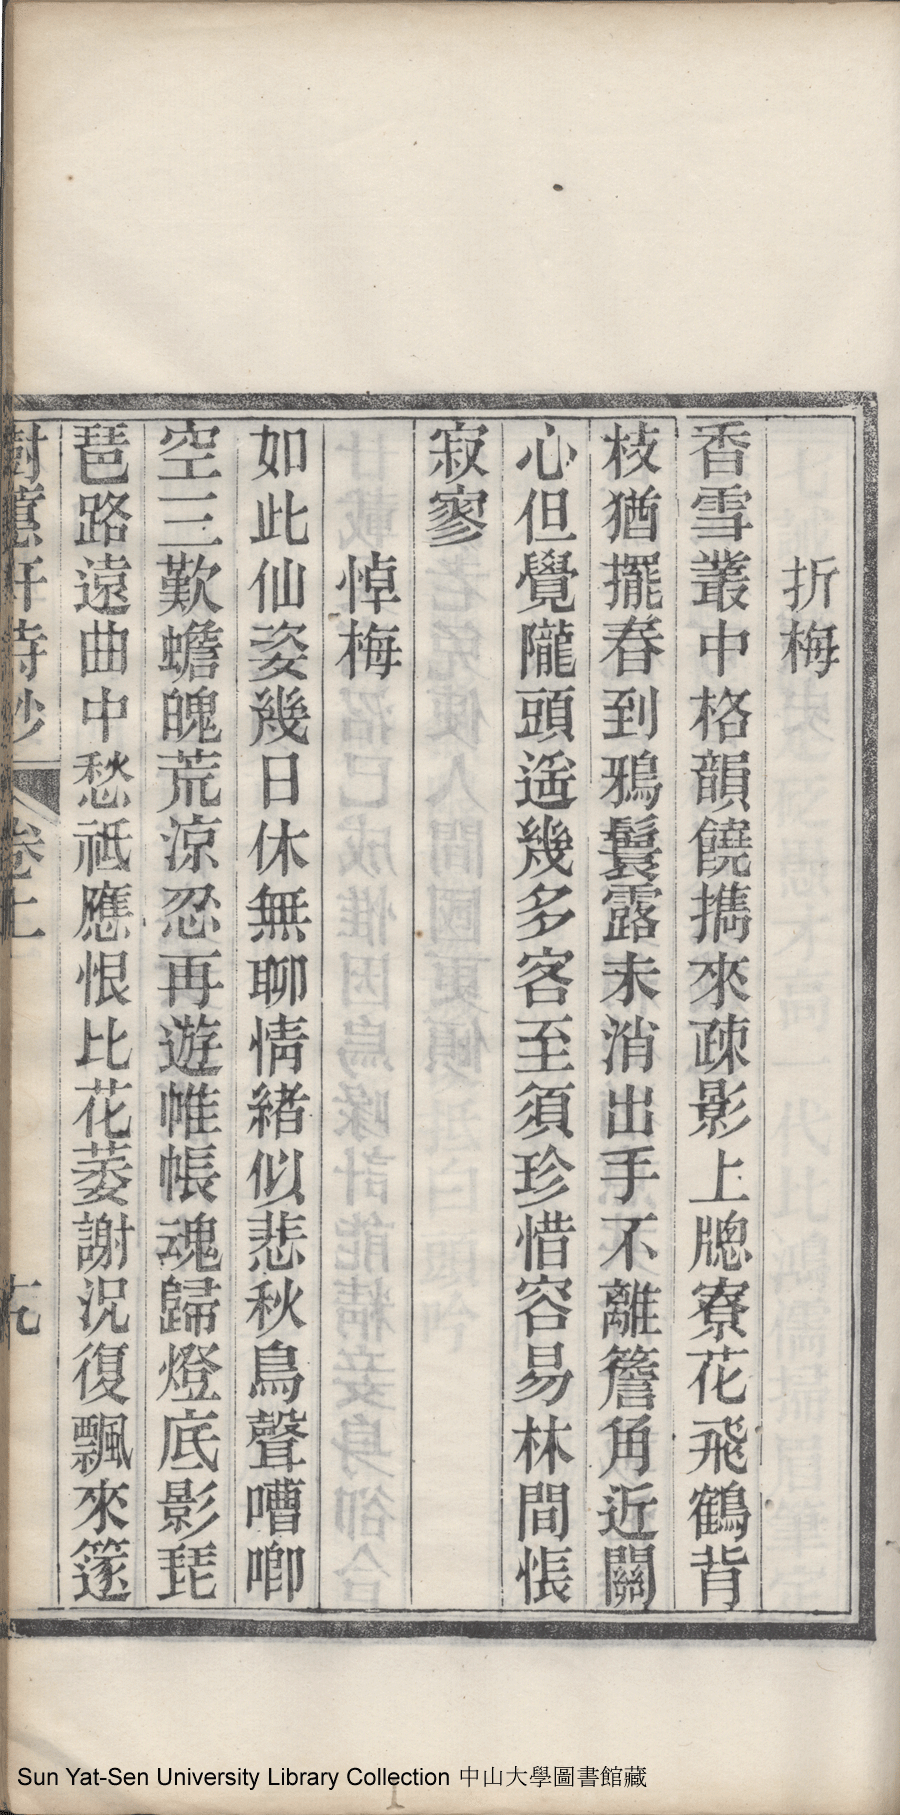 折梅
香雪叢中格韻饒攜來疎影上牕寮花飛鶴背
枝猶擺春到鴉鬟露未消出手不離簷角近關
心但覺隴頭遙幾多客至須珍惜容易林間悵
寂寥
悼梅
如此仙姿幾日休無聊情緒似悲秋鳥聲嘈唧
空三歎蟾魄荒涼忍再遊帷帳魂歸燈底影琵
琶路遠曲中愁祗應恨比花萎謝況復飄來篴
樹蕙軒詩鈔 卷上 九
Sun Yat-Sen University Library Collection 中山大學圖書館藏